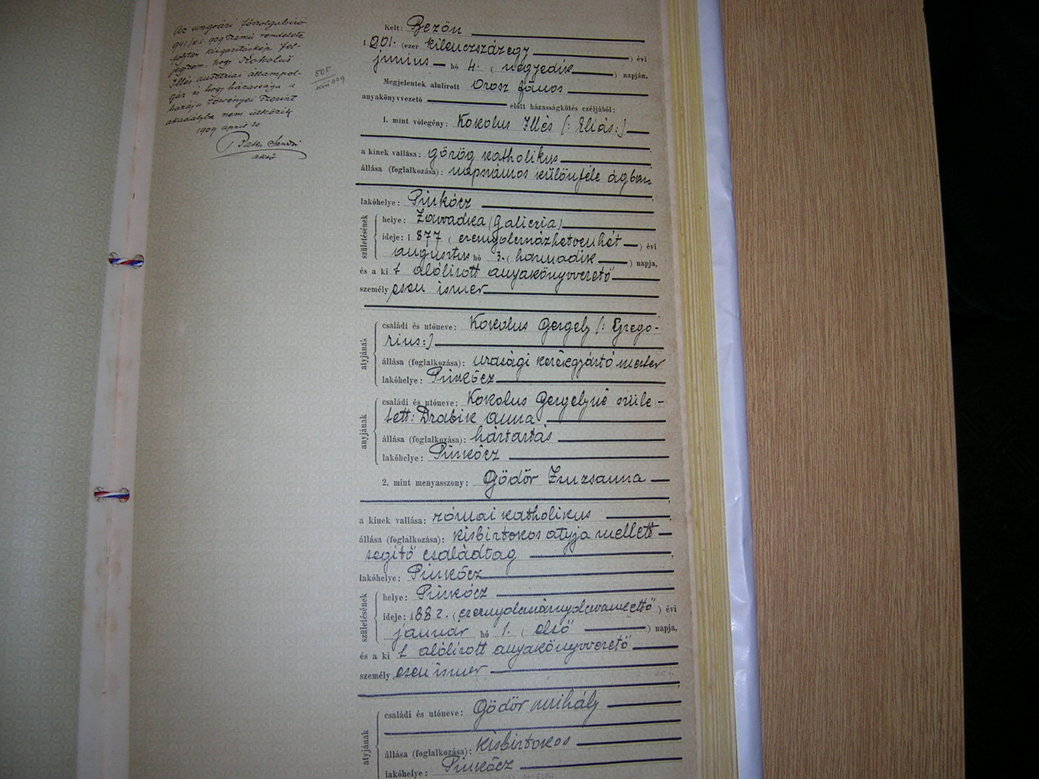 Az ungvári főszolgabíró
941/ki. 909 számú rendelete
folytán kiigazításképp fel-
jegyzem, hogy Kokolus
Illés ausztriai állampol-
gár és hogy házassága a
hazája törvényei szerint
akadályba nem ütközik
1909 április 20
akv
505
1909
Kelt: Bezőn
1901. (ezer kilencszázegy) évi
junius hó 4. (negyedik) napján.
Megjelentek alulirott Orosz János
anyakönyvvezető előtt házasságkötés czéljából:
1. mint vőlegény: Kokolus Illés (: Eliás:)
a kinek vallása: görög katholikus
állása (foglalkozása): napszámos különféle ágban
lakóhelye: Pinkócz
születésének
helye: Zawadka (Galicria)
ideje: 1877 (ezernyolczszázhetvenhét) évi
augusztus hó 3. (harmadik) napja,
és a ki t alólirott anyakönyvvezető
személyesen ismer
atyjának
családi és utóneve: Kokolus Gergely (: Grego-
rius:)
állása (foglalkozása): urasági kerékgyártó mester
lakóhelye: Pinkócz
anyjának
családi és utóneve: Kokolus Gergelyné szüle-
tett: Drabik Anna
állása (foglalkozása): háztartás
lakóhelye: Pinkócz
2. mint menyasszony: Gödör Zsuzsanna
a kinek vallása: római katholikus
állása (foglalkozása): kisbirtokos atyja mellett
segitő családtag
lakóhelye: Pinkócz
születésének
helye: Pinkócz
ideje: 1882. (ezernyolczszáznyolczvankettő) évi
január hó 1. (első) napja,
és a ki t alólirott anyakönyvvezető
személyesen ismer
atyjának
családi és utóneve: Gödör Mihály
állása (foglalkozása): kisbirtokos
lakóhelye: Pinkócz